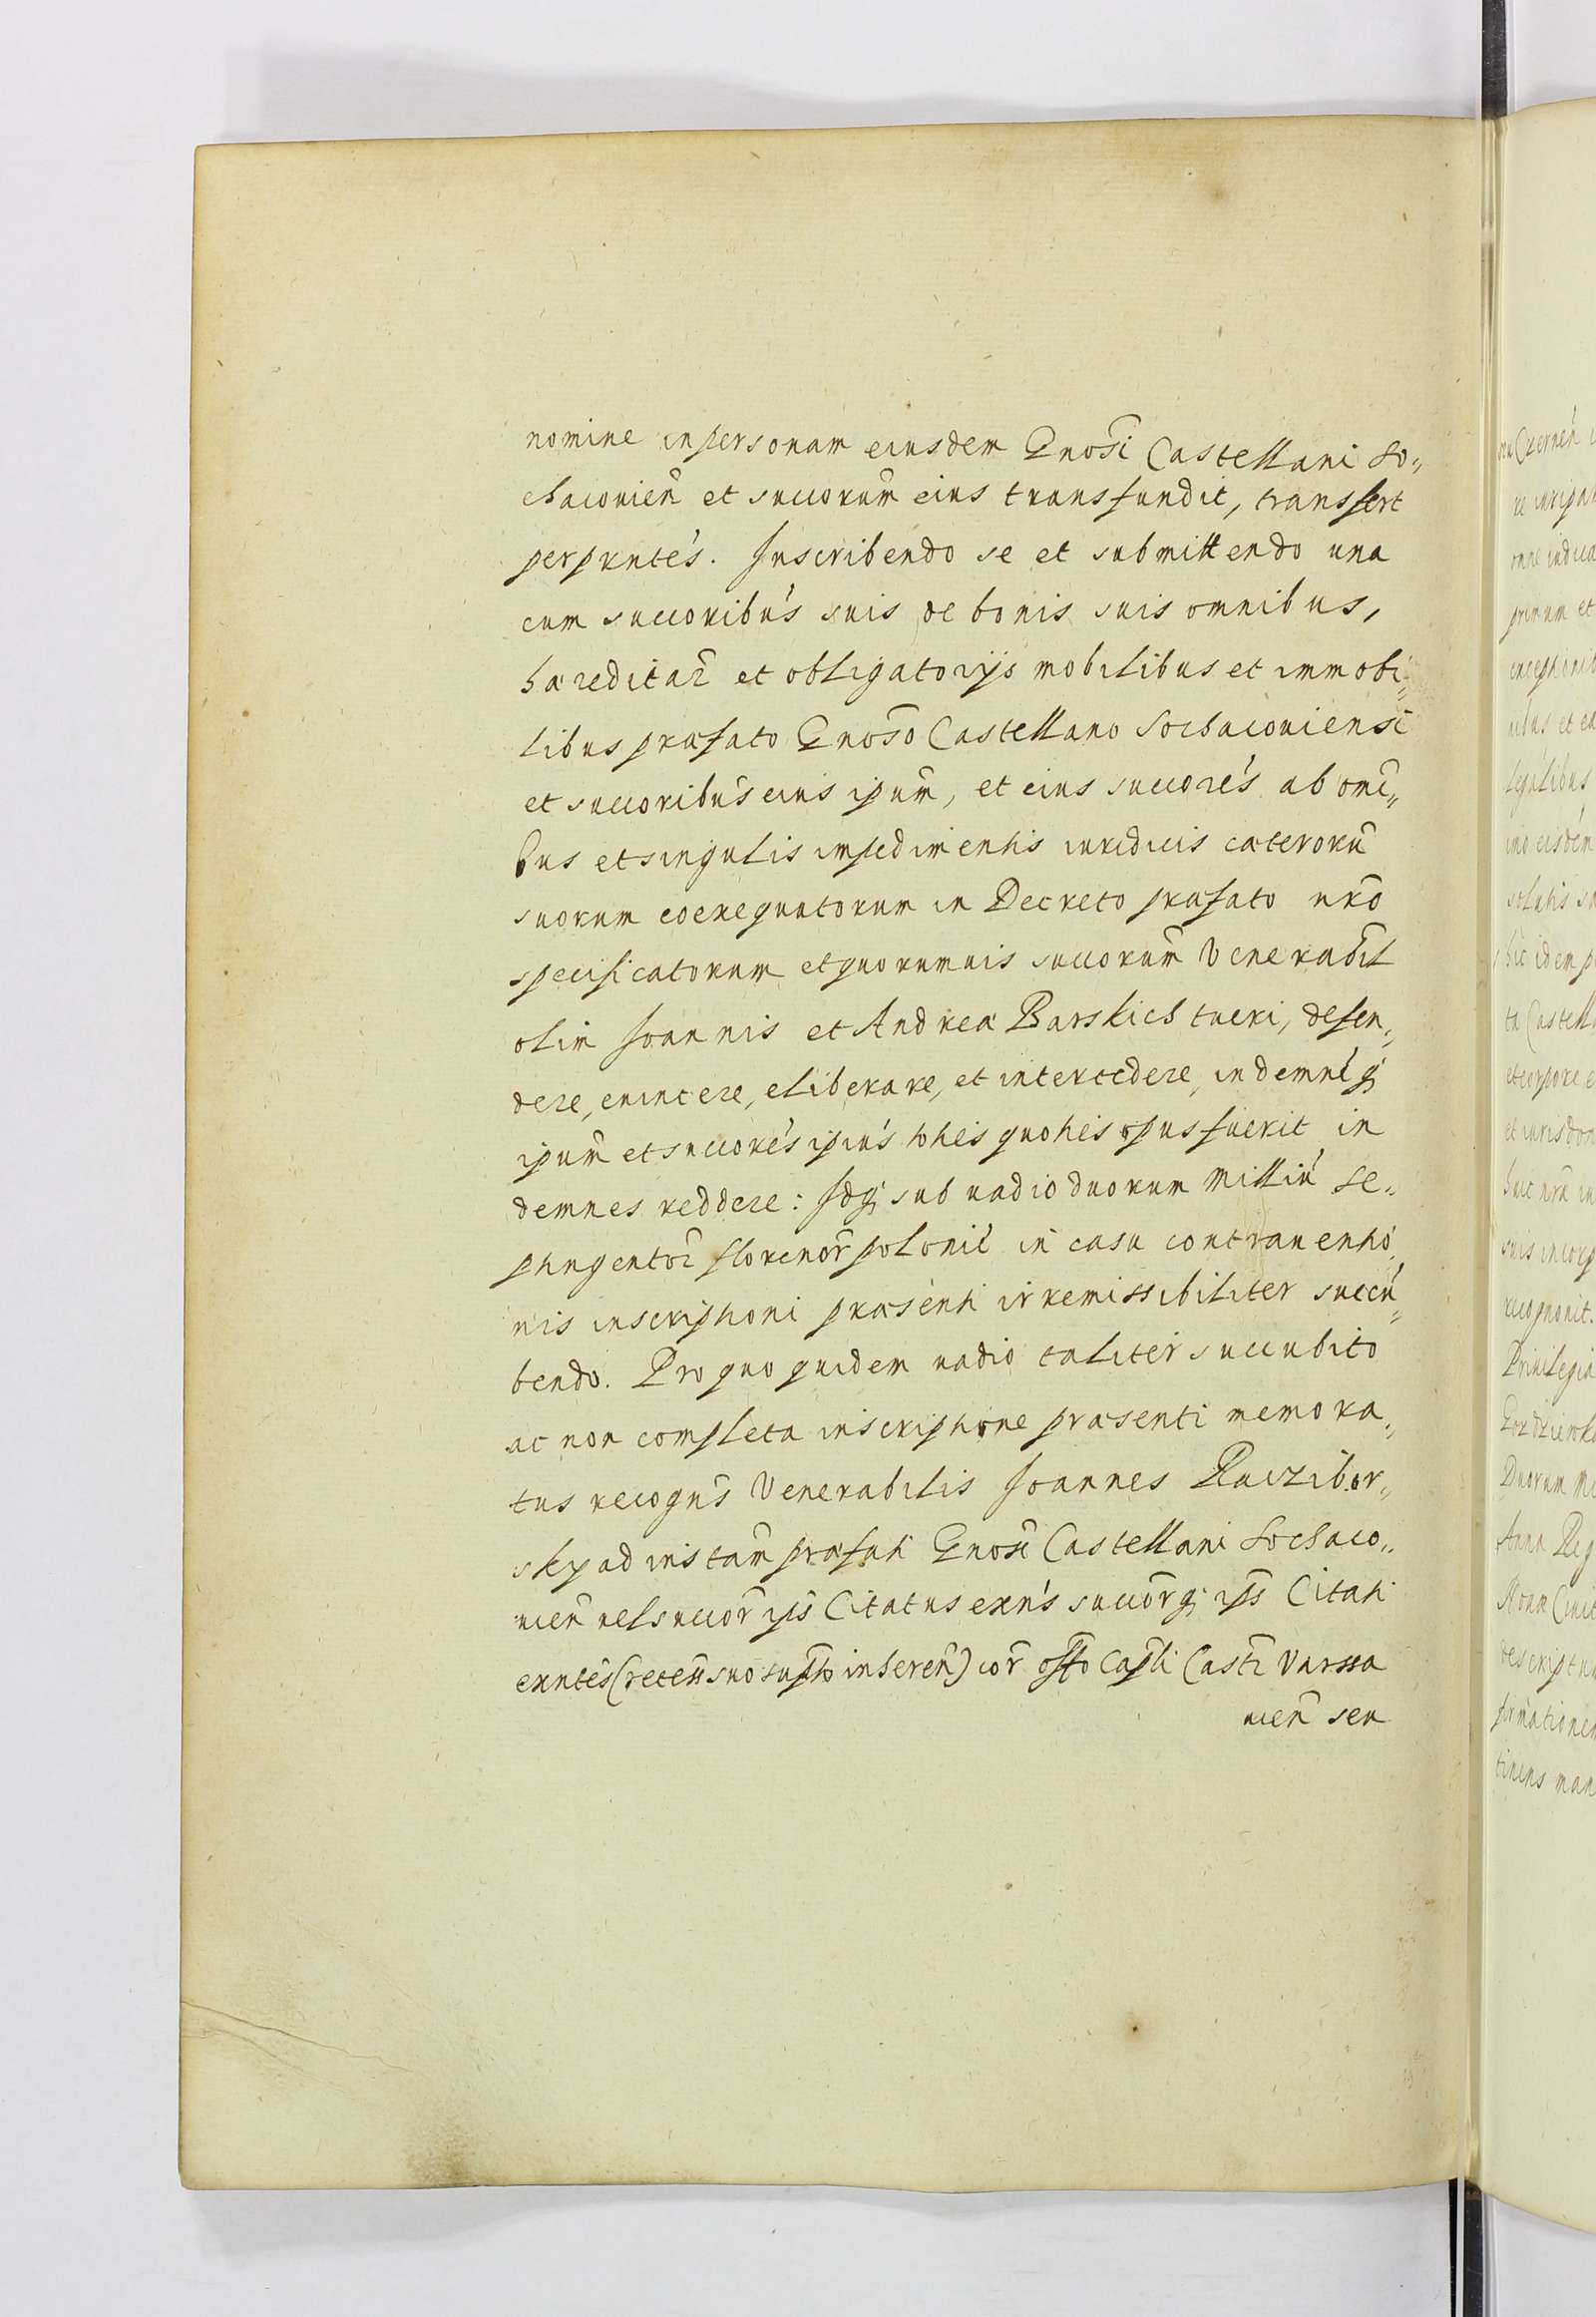 nomine in personam eiusdem Gnosi Castellani So„
chaconien et succorum eius transfundit, transfert
per prntes. Inscribendo se et submittendo una
cum succoribus suis de bonis suis omnibus,
hæreditar et obligatorijs mobilibus et immobi„
libus præfato Gnoso Castellano Sochaconiensi
et succoribus eius ipum, et eius succores ab omi„
bus et singulis impedimentis iuridicis cæterorū
suorum coexequutorum in Decreto præfato nro
specificatorum et quorumuis succorum Venerabil
olim Joannis et Andreæ Barskich tueri, defen„
dere, euincere, eliberare, et intercedere, indemnéq;
ipum et succores ipius toties quoties opus fuerit in
demnes reddere: Idq; sub uadio duorum Milliu Se„
ptingentor florenor polonic in casu contrauentio„
nis inscriptioni præsenti irremissibiliter succū„
bendo. Pro quo quidem uadio taliter succubito
ac non completa inscriptione præsenti memora„
tus recogns Venerabilis Joannes Raczibor„
sky ad instam præfati Gnosi Castellani Sochaco„
uien uel succor ipis Citatus exns succorq; ips Citati
exntes (recessui suo supto inheren) cor offo Capli Castr Varssa
uien seu